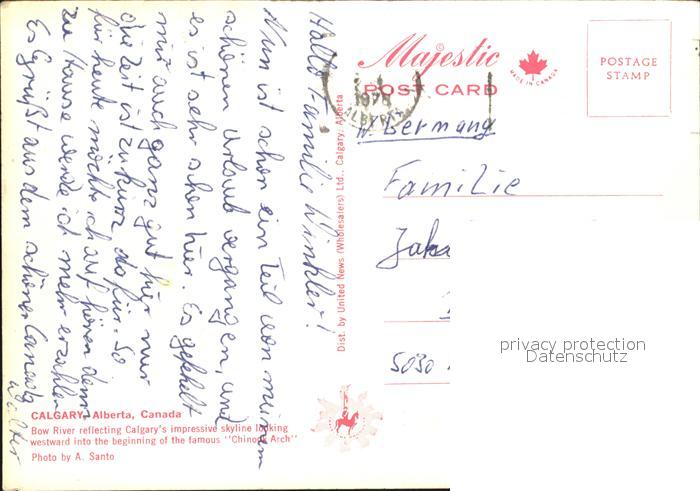 Majestic
MADE IN CANADA
POST CARD
POSTAGE
STAMP
1978
ALBERTA
W. Germany
Familie
5030
privacy protection
Datenschutz
Dist. by United News (Wholesalers) Ltd., Calgary, Alberta
Hallo Familie Winkler!
Nun ist schon ein Teil von meinem
schönen Urlaub vergangen, und
es ist sehr schön hier. Es gefehlt
mir auch ganz gut hier nur
die Zeit ist zu kurz dafür. So
für heute möchte ich auf hören denn
zu Hause werde ich mehr erzählen
Es Grüßt aus dem schönen Canada
Walter
CALGARY, Alberta, Canada
Bow River reflecting Calgary's impressive skyline looking
westward into the beginning of the famous "Chinook Arch"
Photo by A. Santo